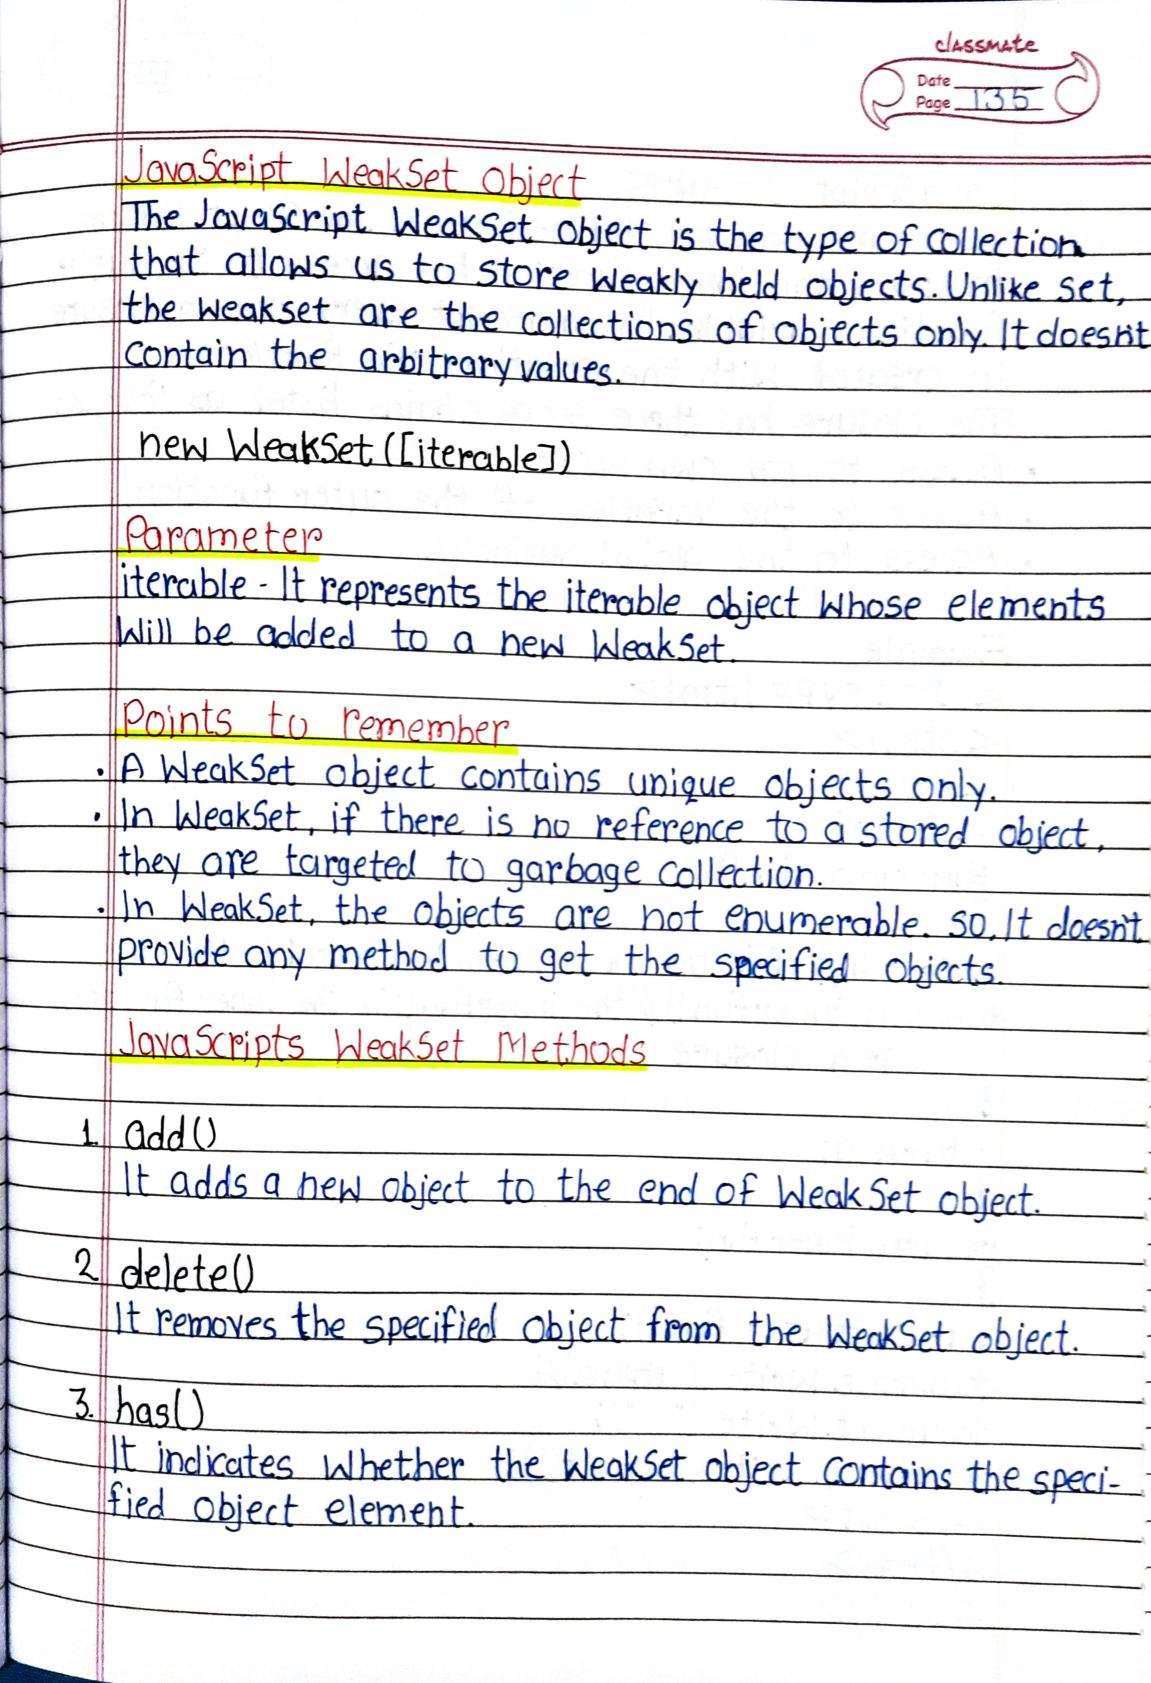 classmate
Date
Page 135
JavaScript WeakSet Object
The JavaScript WeakSet object is the type of collection
that allows us to store weakly held objects. Unlike Set,
the WeakSet are the collections of objects only. It doesn't
contain the arbitrary values.
new WeakSet([iterable])
Parameter
iterable - It represents the iterable object whose elements
will be added to a new WeakSet.
Points to remember
• A WeakSet object contains unique objects only.
• In WeakSet, if there is no reference to a stored object,
they are targeted to garbage collection.
• In WeakSet, the objects are not enumerable. So, It doesn't
provide any method to get the specified objects.
JavaScripts WeakSet Methods
1. add()
It adds a new object to the end of WeakSet object.
2. delete()
It removes the specified object from the WeakSet object.
3. has()
It indicates whether the WeakSet object contains the speci-
fied object element.